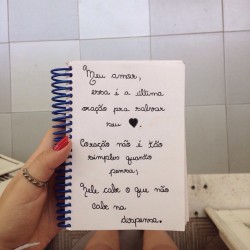 Meu amor,
essa é a ultima
oração pra salvar
seu ♥.
Coração não é tão
simples quanto
pensa,
Nele cabe o que não
cabe na
despensa.